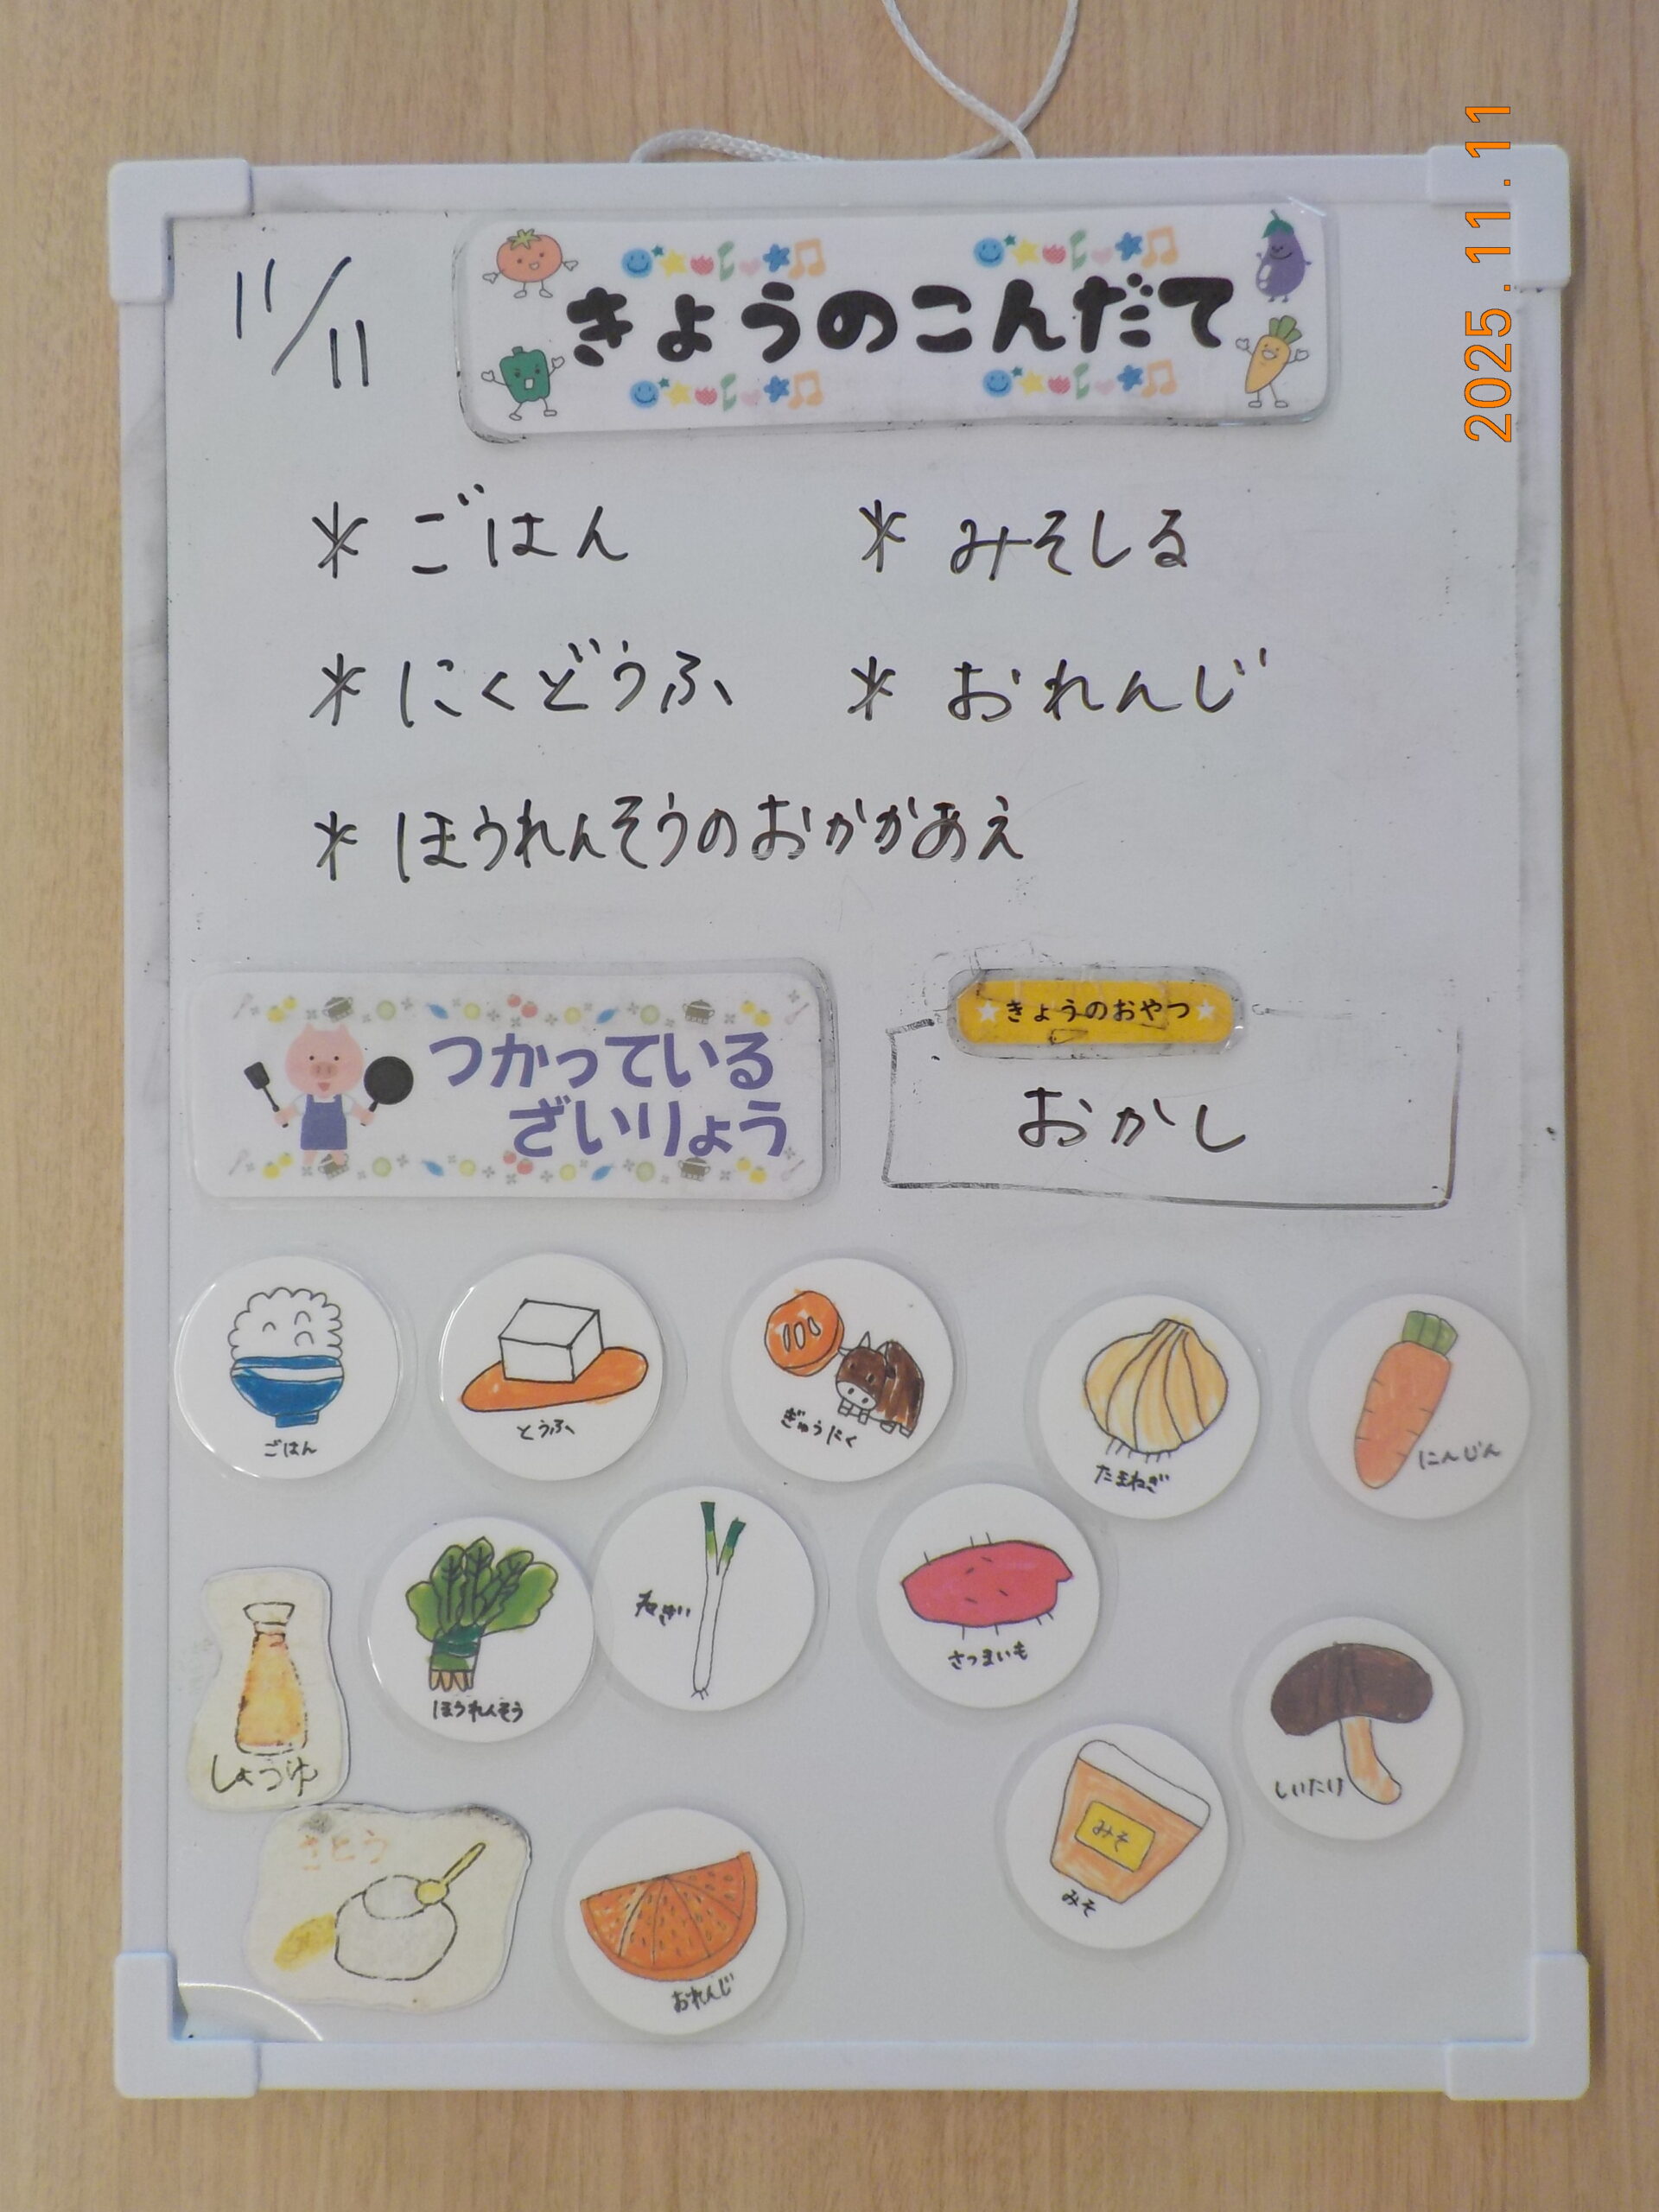 11/11
きょうのこんだて
2025.11.11
* ごはん
* みそしる
* にくどうふ
* おれんじ
* ほうれんそうのおかかあえ
つかっている
ざいりょう
★きょうのおやつ★
おかし
ごはん
とうふ
ぎゅうにく
たまねぎ
にんじん
しょうゆ
ほうれんそう
ねぎ
さつまいも
しいたけ
さとう
おれんじ
みそ
みそ